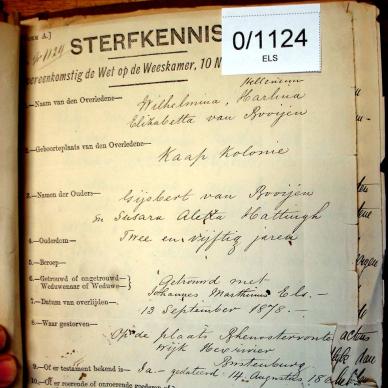 EN A.]
No 1124
STERFKENNIS
0/1124
ELS
ereenkomstig de Wet op de Weeskamer, 10 N
1.—Naam van den Overledene—
Wilhelmina, Hartina
Elizabetta van Rooijen
2.—Geboorteplaats van den Overledene—
Kaap Kolonie
3.—Namen der Ouders—
Gijsbert van Rooijen
en Susara Aletta Hattingh
4.—Ouderdom—
Twee en vijftig jaren
5.—Beroep—
6.—Getrouwd of ongetrouwd
Weduwenaar of Weduwe
Getrouwd met
Johannes Marthinus Els.—
7.—Datum van overlijden—
13 September 1878.—
8.—Waar gestorven—
Op de plaats Rhenosterfontein
Wijk Hexrivier
Rustenburg
9.—Of er testament bekend is—
Ja— gedateerd 14 Augustus 18
10.—Of er roerende of onroerende